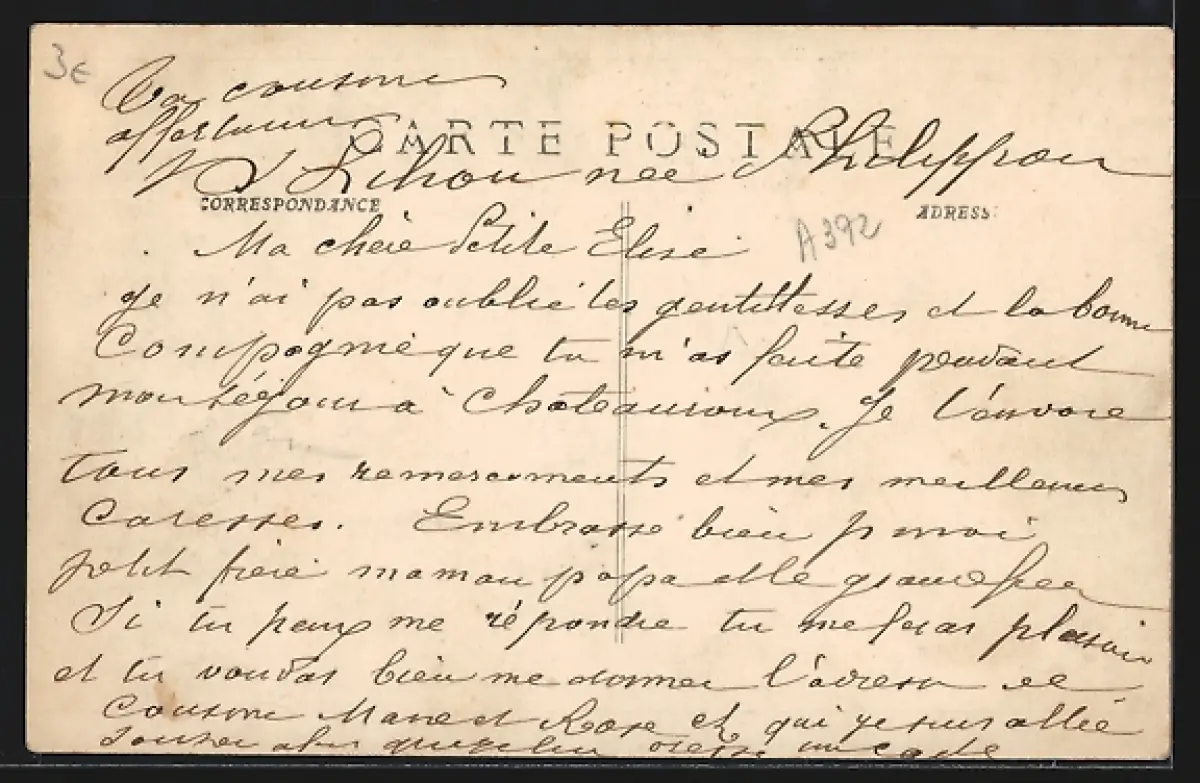 3€
Ta cousine
affectueuse
CARTE POSTALE
Lihou née Philippon
CORRESPONDANCE
ADRESS
A392
Ma chère Petite Elise
je n'ai pas oublié tes gentillesses et la bonne
Compagnie que tu m'as faite pendant
mon séjour à Chateauroux. Je t'envoie
tous mes remerciements et mes meilleures
Caresses. Embrasse bien p moi
petit frère maman papa et le grand frère
Si tu peux me répondre tu me feras plaisir
et tu voudras bien me donner l'adresse de
Cousine Marie et Rose et qui je suis allée
une carte